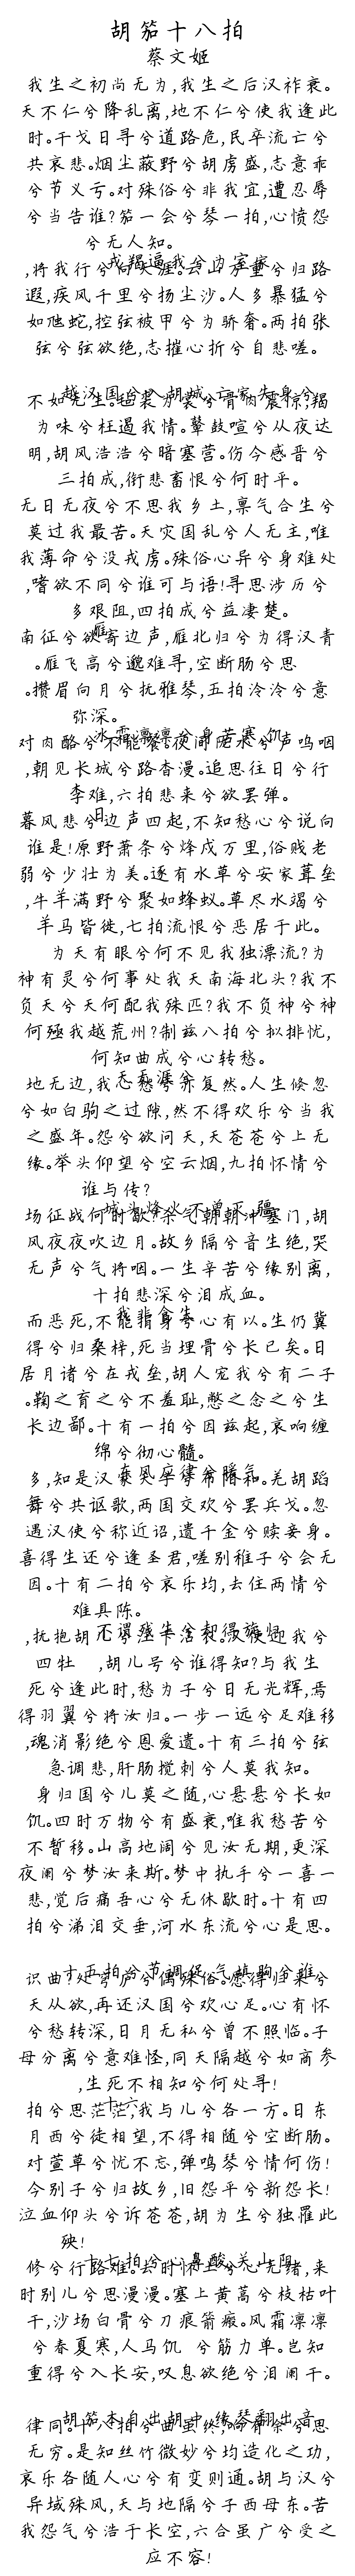 胡笳十八拍
蔡文姬
我生之初尚无为,我生之后汉祚衰。
天不仁兮降乱离,地不仁兮使我逢此
时。干戈日寻兮道路危,民卒流亡兮
共哀悲。烟尘蔽野兮胡虏盛,志意乖
兮节义亏。对殊俗兮非我宜,遭忍辱
兮当告谁?笳一会兮琴一拍,心愤怨
兮无人知。
戎羯逼我兮为室家
,将我行兮向天涯。云山万重兮归路
遐,疾风千里兮扬尘沙。人多暴猛兮
如虺蛇,控弦被甲兮为骄奢。两拍张
弦兮弦欲绝,志摧心折兮自悲嗟。
越汉国兮入胡城,亡家失身兮
不如无生。毡裘为裳兮骨肉震惊,羯
为味兮枉遏我情。鞞鼓喧兮从夜达
明,胡风浩浩兮暗塞营。伤今感晋兮
三拍成,衔悲畜恨兮何时平。
无日无夜兮不思我乡土,禀气合生兮
莫过我最苦。天灾国乱兮人无主,唯
我薄命兮没戎虏。殊俗心异兮身难处
,嗜欲不同兮谁可与语!寻思涉历兮
多艰阻,四拍成兮益凄楚。
雁
南征兮欲寄边声,雁北归兮为得汉青
。雁飞高兮邈难寻,空断肠兮思
。攒眉向月兮抚雅琴,五拍泠泠兮意
弥深。
冰霜凛凛兮身苦寒,饥
对肉酪兮不能餐。夜间陇水兮声呜咽
,朝见长城兮路杳漫。追思往日兮行
李难,六拍悲来兮欲罢弹。
日
暮风悲兮边声四起,不知愁心兮说向
谁是!原野萧条兮烽戍万里,俗贱老
弱兮少壮为美。逐有水草兮安家葺垒
,牛羊满野兮聚如蜂蚁。草尽水竭兮
羊马皆徙,七拍流恨兮恶居于此。
为天有眼兮何不见我独漂流?为
神有灵兮何事处我天南海北头?我不
负天兮天何配我殊匹?我不负神兮神
何殛我越荒州?制兹八拍兮拟排忧,
何知曲成兮心转愁。
天无涯兮
地无边,我心愁兮亦复然。人生倏忽
兮如白驹之过隙,然不得欢乐兮当我
之盛年。怨兮欲问天,天苍苍兮上无
缘。举头仰望兮空云烟,九拍怀情兮
谁与传?
城头烽火不曾灭,疆
场征战何时歇?杀气朝朝冲塞门,胡
风夜夜吹边月。故乡隔兮音尘绝,哭
无声兮气将咽。一生辛苦兮缘别离,
十拍悲深兮泪成血。
我非食生
而恶死,不能捐身兮心有以。生仍冀
得兮归桑梓,死当埋骨兮长已矣。日
居月诸兮在戎垒,胡人宠我兮有二子
。鞠之育之兮不羞耻,愍之念之兮生
长边鄙。十有一拍兮因兹起,哀响缠
绵兮彻心髓。
东风应律兮暖气
多,知是汉家天子兮布阳和。羌胡蹈
舞兮共讴歌,两国交欢兮罢兵戈。忽
遇汉使兮称近诏,遗千金兮赎妾身。
喜得生还兮逢圣君,嗟别稚子兮会无
因。十有二拍兮哀乐均,去住两情兮
难具陈。
不谓残生兮却得旋归
,抚抱胡儿兮泣下沾衣。汉使迎我兮
四牡 ,胡儿号兮谁得知?与我生
死兮逢此时,愁为子兮日无光辉,焉
得羽翼兮将汝归。一步一远兮足难移
,魂消影绝兮恩爱遗。十有三拍兮弦
急调悲,肝肠搅刺兮人莫我知。
身归国兮儿莫之随,心悬悬兮长如
饥。四时万物兮有盛衰,唯我愁苦兮
不暂移。山高地阔兮见汝无期,更深
夜阑兮梦汝来斯。梦中执手兮一喜一
悲,觉后痛吾心兮无休歇时。十有四
拍兮涕泪交垂,河水东流兮心是思。
十五拍兮节调促,气填胸兮谁
识曲?处穹庐兮偶殊俗。愿得归来兮
天从欲,再还汉国兮欢心足。心有怀
兮愁转深,日月无私兮曾不照临。子
母分离兮意难怪,同天隔越兮如商参
,生死不相知兮何处寻!
十六
拍兮思茫茫,我与儿兮各一方。日东
月西兮徒相望,不得相随兮空断肠。
对萱草兮忧不忘,弹鸣琴兮情何伤!
今别子兮归故乡,旧怨平兮新怨长!
泣血仰头兮诉苍苍,胡为生兮独罹此
殃!
十七拍兮心鼻酸,关山阻
修兮行路难。去时怀土兮心无绪,来
时别儿兮思漫漫。塞上黄蒿兮枝枯叶
干,沙场白骨兮刀痕箭瘢。风霜凛凛
兮春夏寒,人马饥 兮筋力单。岂知
重得兮入长安,叹息欲绝兮泪阑干。
胡笳本自出胡中,缘琴翻出音
律同。十八拍兮曲虽终,响有余兮思
无穷。是知丝竹微妙兮均造化之功,
哀乐各随人心兮有变则通。胡与汉兮
异域殊风,天与地隔兮子西母东。苦
我怨气兮浩于长空,六合虽广兮受之
应不容!